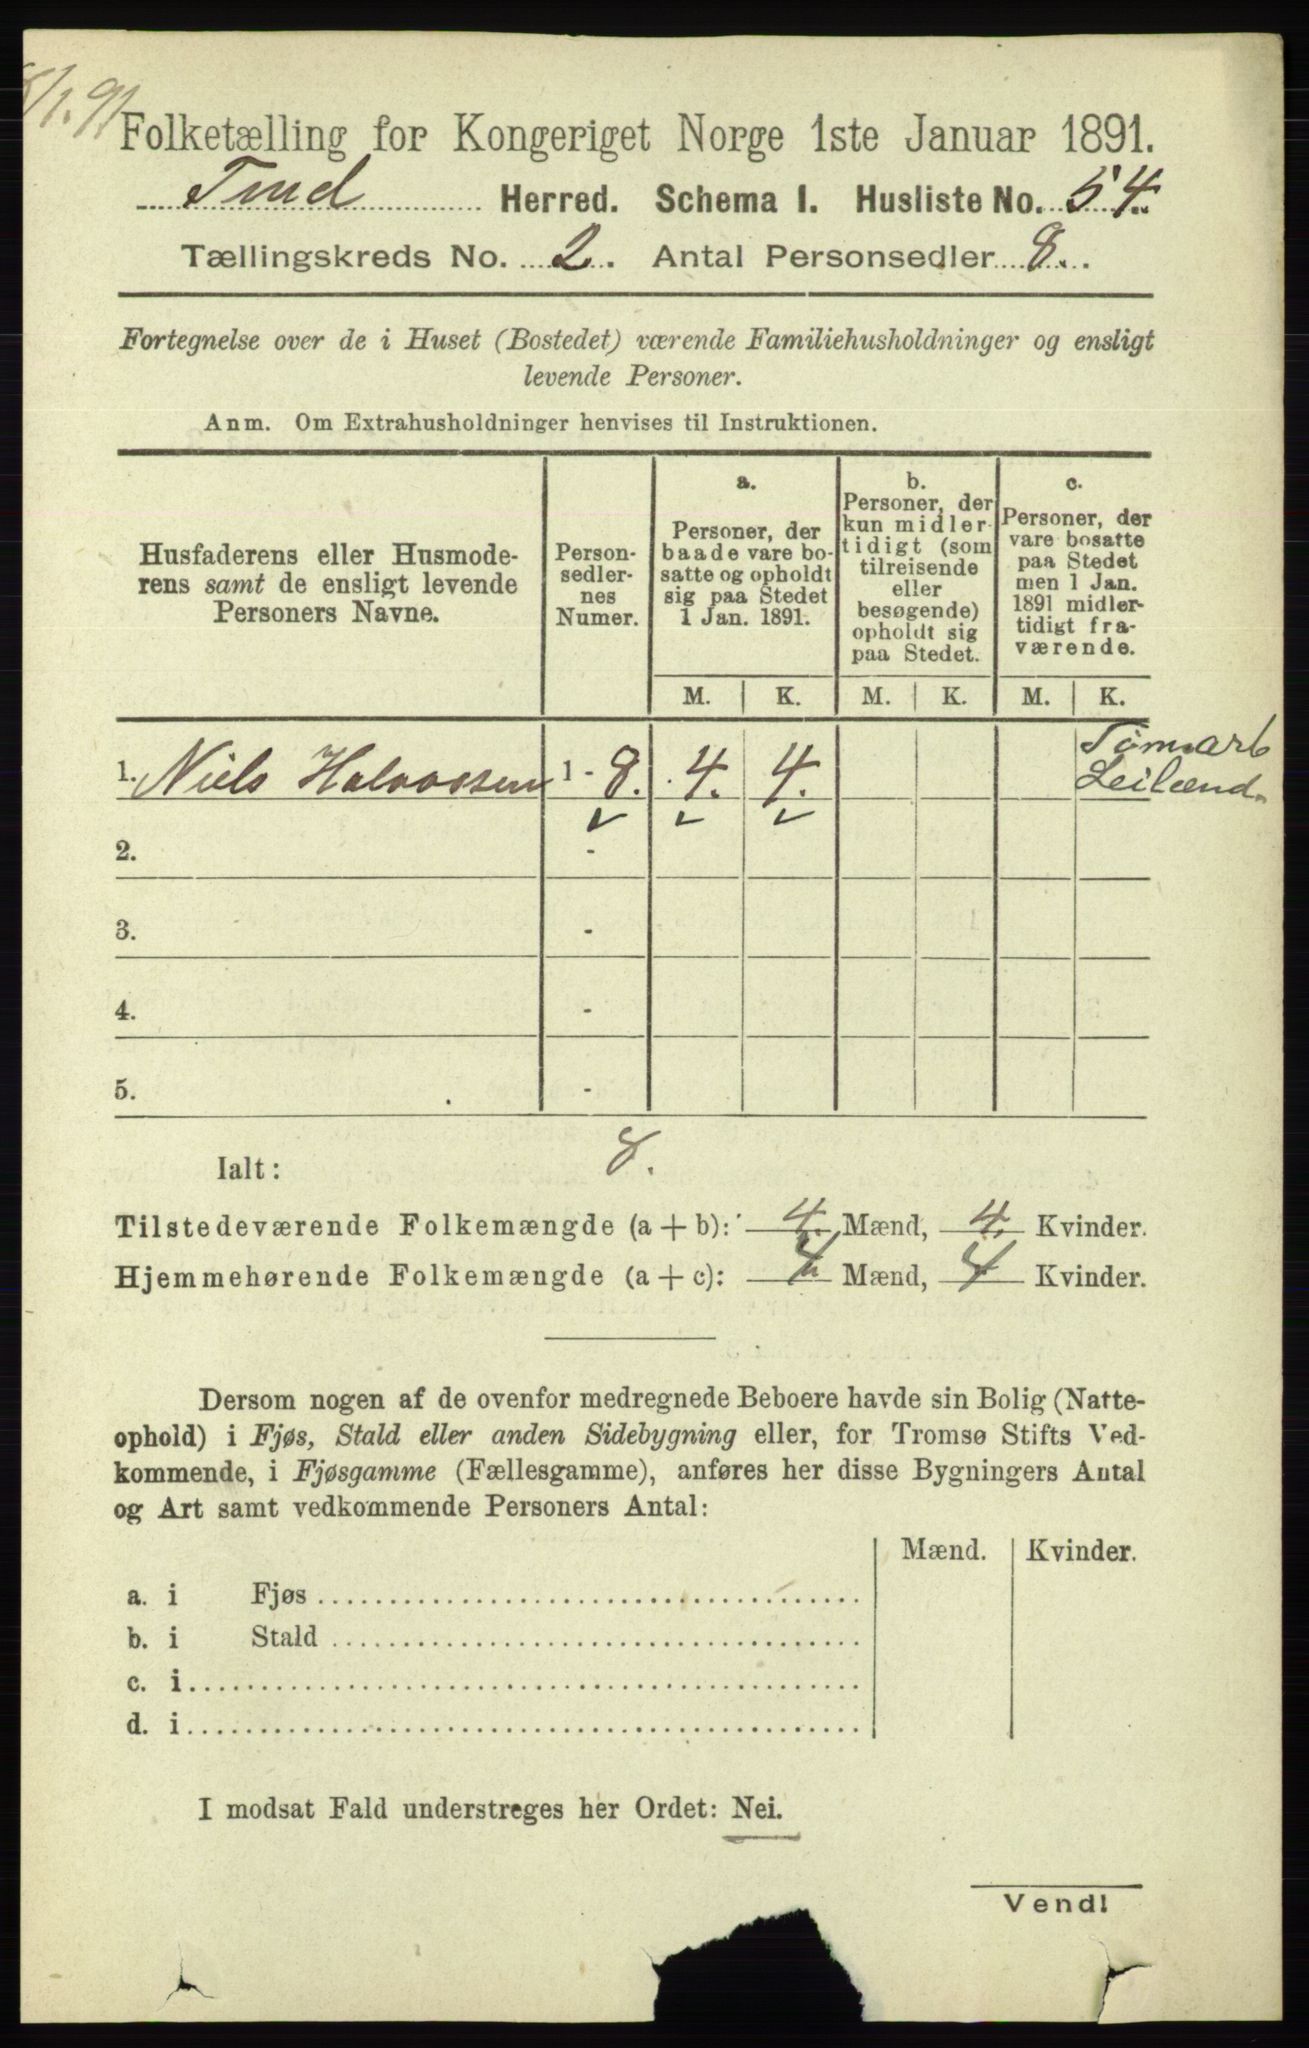 /1.91
Folketælling for Kongeriget Norge 1ste Januar 1891.
Tind Herred. Schema I. Husliste No. 54.
Tællingskreds No. 2. Antal Personsedler 8.
Fortegnelse over de i Huset (Bostedet) værende Familiehusholdninger og ensligt
levende Personer.
Anm. Om Extrahusholdninger henvises til Instruktionen.
Husfaderens eller Husmode-
rens samt de ensligt levende
Personers Navne.
Person-
sedler-
nes
Numer.
a.
Personer, der
baade vare bo-
satte og opholdt
sig paa Stedet
1 Jan. 1891.
b.
Personer, der
kun midler-
tidigt (som
tilreisende
eller
besøgende)
opholdt sig
paa Stedet.
c.
Personer, der
vare bosatte
paa Stedet
men 1 Jan.
1891 midler-
tidigt fra-
værende.
M. K. M. K. M. K.
1. Niels Halvorsen 1 - 8. 4. 4.
Tømarb
Leilænd.
2. -
3. -
4. -
5. -
Ialt: 8.
Tilstedeværende Folkemængde (a + b): 4. Mænd, 4. Kvinder.
Hjemmehørende Folkemængde (a + c): 4 Mænd, 4 Kvinder.
Dersom nogen af de ovenfor medregnede Beboere havde sin Bolig (Natte-
ophold) i Fjøs, Stald eller anden Sidebygning eller, for Tromsø Stifts Ved-
kommende, i Fjøsgamme (Fællesgamme), anføres her disse Bygningers Antal
og Art samt vedkommende Personers Antal:
Mænd. Kvinder.
a. i Fjøs
b. i Stald
c. i
d. i
I modsat Fald understreges her Ordet: Nei.
Vend!